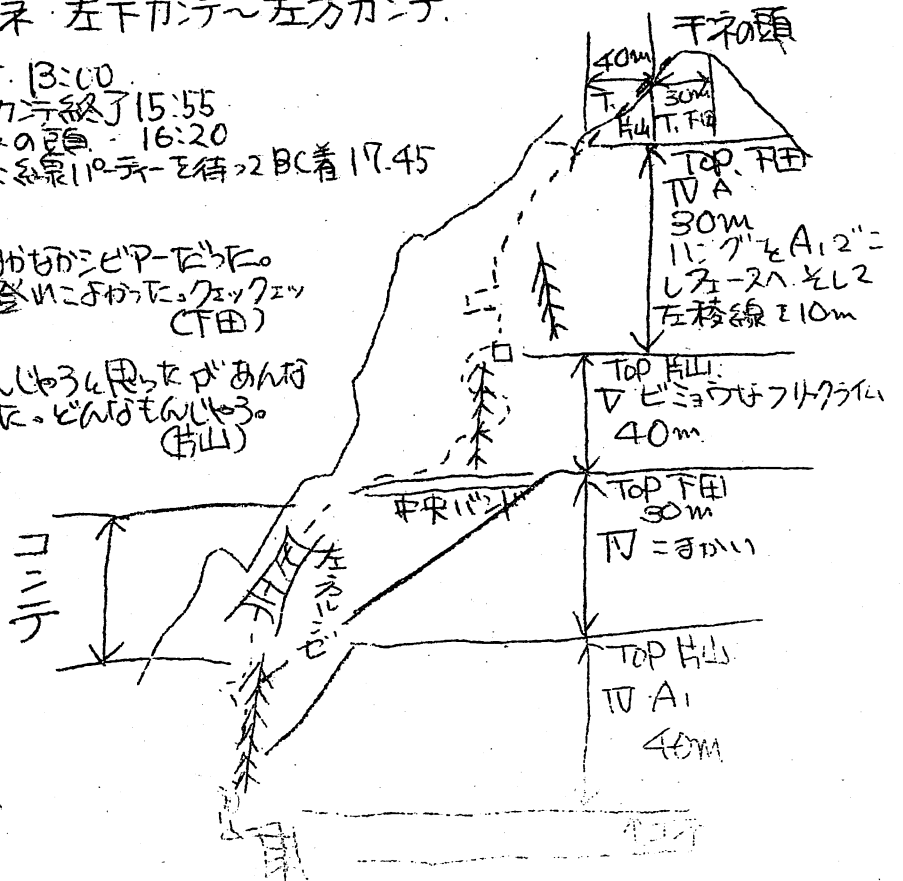 ネ 左下カンテ〜左方カンテ.
13:00
カンテ終了15:55
の頭 16:20
パーティーを待って BC着 17.45
なかなかシビアーだった。
登れてよかった。クェックェッ
(下田)
んじゃろと思ったがあんな
た。どんなもんじゃろ。
(片山)
チネの頭
40m
T.片山
30m
T.下田
TOP.下田
Ⅳ A
30m
ハングをA1でこ
しフェースへ.そして
左稜線を10m
TOP 片山.
Ⅴ ビミョウなフリークライム
40m
中央バンド
TOP 下田
30m
Ⅳ こまかい
コンテ
左方ルンゼ
TOP 片山
Ⅳ A1
40m
↑コンテ